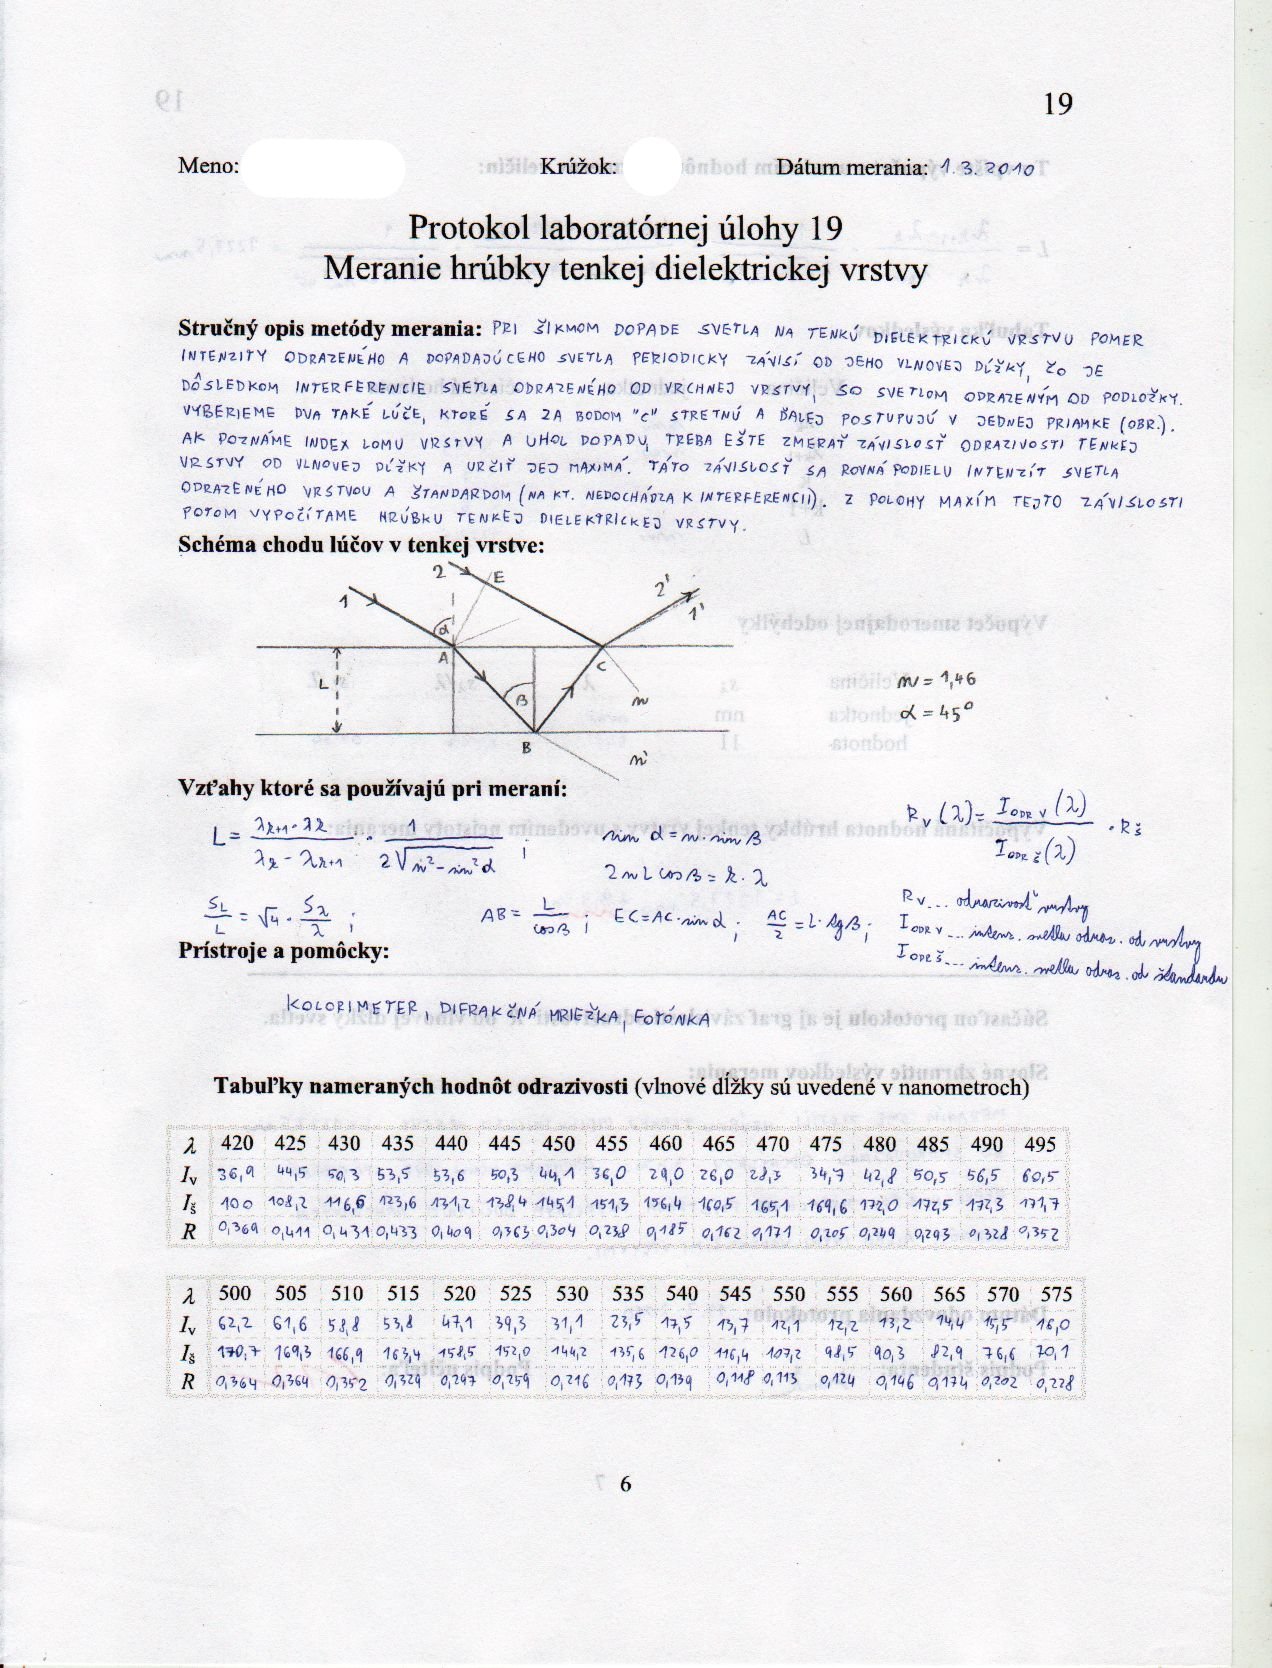 19
Meno: Krúžok: Dátum merania: 1.3.2010
Protokol laboratórnej úlohy 19
Meranie hrúbky tenkej dielektrickej vrstvy
Stručný opis metódy merania: PRI ŠIKMOM DOPADE SVETLA NA TENKÚ DIELEKTRICKÚ VRSTVU POMER
INTENZITY ODRAZENÉHO A DOPADAJÚCEHO SVETLA PERIODICKY ZÁVISÍ OD JEHO VLNOVEJ DĹŽKY, ČO JE
DÔSLEDKOM INTERFERENCIE SVETLA ODRAZENÉHO OD VRCHNEJ VRSTVY, SO SVETLOM ODRAZENÝM OD PODLOŽKY.
VYBERIEME DVA TAKÉ LÚČE, KTORÉ SA ZA BODOM "C" STRETNÚ A ĎALEJ POSTUPUJÚ V JEDNEJ PRIAMKE (OBR.).
AK POZNÁME INDEX LOMU VRSTVY A UHOL DOPADU, TREBA EŠTE ZMERAŤ ZÁVISLOSŤ ODRAZIVOSTI TENKEJ
VRSTVY OD VLNOVEJ DĹŽKY A URČIŤ JEJ MAXIMÁ. TÁTO ZÁVISLOSŤ SA ROVNÁ PODIELU INTENZÍT SVETLA
ODRAZENÉHO VRSTVOU A ŠTANDARDOM (NA KT. NEDOCHÁDZA K INTERFERENCII). Z POLOHY MAXÍM TEJTO ZÁVISLOSTI
POTOM VYPOČÍTAME HRÚBKU TENKEJ DIELEKTRICKEJ VRSTVY.
Schéma chodu lúčov v tenkej vrstve:
2 E 2'
1 α 1'
A C
L β n
B n'
n = 1,46
α = 45°
Vzťahy ktoré sa používajú pri meraní:
L = λk+1 · λk / λk - λk+1 · 1 / 2√n² - sin²α ; sin α = n · sin β
2nL cosβ = k · λ
Rv(λ) = IODR V(λ) / IODR Š(λ) · RŠ
SL / L = √4 · Sλ / λ ; AB = L / cosβ ; EC = AC · sin α ; AC / 2 = L · tgβ ;
Rv ... odrazivosť vrstvy
IODR V ... intenz. svetla odraz. od vrstvy
IODR Š ... intenz. svetla odraz. od štandardu
Prístroje a pomôcky:
KOLORIMETER, DIFRAKČNÁ MRIEŽKA, FOTÓNKA
Tabuľky nameraných hodnôt odrazivosti (vlnové dĺžky sú uvedené v nanometroch)
λ 420 425 430 435 440 445 450 455 460 465 470 475 480 485 490 495
Iv 36,9 44,5 50,3 53,5 53,6 50,3 44,1 36,0 29,0 26,0 28,3 34,7 42,8 50,5 56,5 60,5
Iš 100 108,2 116,6 123,6 131,2 138,4 145,1 151,3 156,4 160,5 165,1 169,6 172,0 172,5 172,3 171,7
R 0,369 0,411 0,431 0,433 0,409 0,363 0,304 0,238 0,185 0,162 0,171 0,205 0,249 0,293 0,328 0,352
λ 500 505 510 515 520 525 530 535 540 545 550 555 560 565 570 575
Iv 62,2 61,6 58,8 53,8 47,1 39,3 31,1 23,5 17,5 13,7 12,1 12,2 13,2 14,4 15,5 16,0
Iš 170,7 169,3 166,9 163,4 158,5 152,0 144,2 135,6 126,0 116,4 107,2 98,5 90,3 82,9 76,6 70,1
R 0,364 0,364 0,352 0,329 0,297 0,259 0,216 0,173 0,139 0,118 0,113 0,124 0,146 0,174 0,202 0,228
6